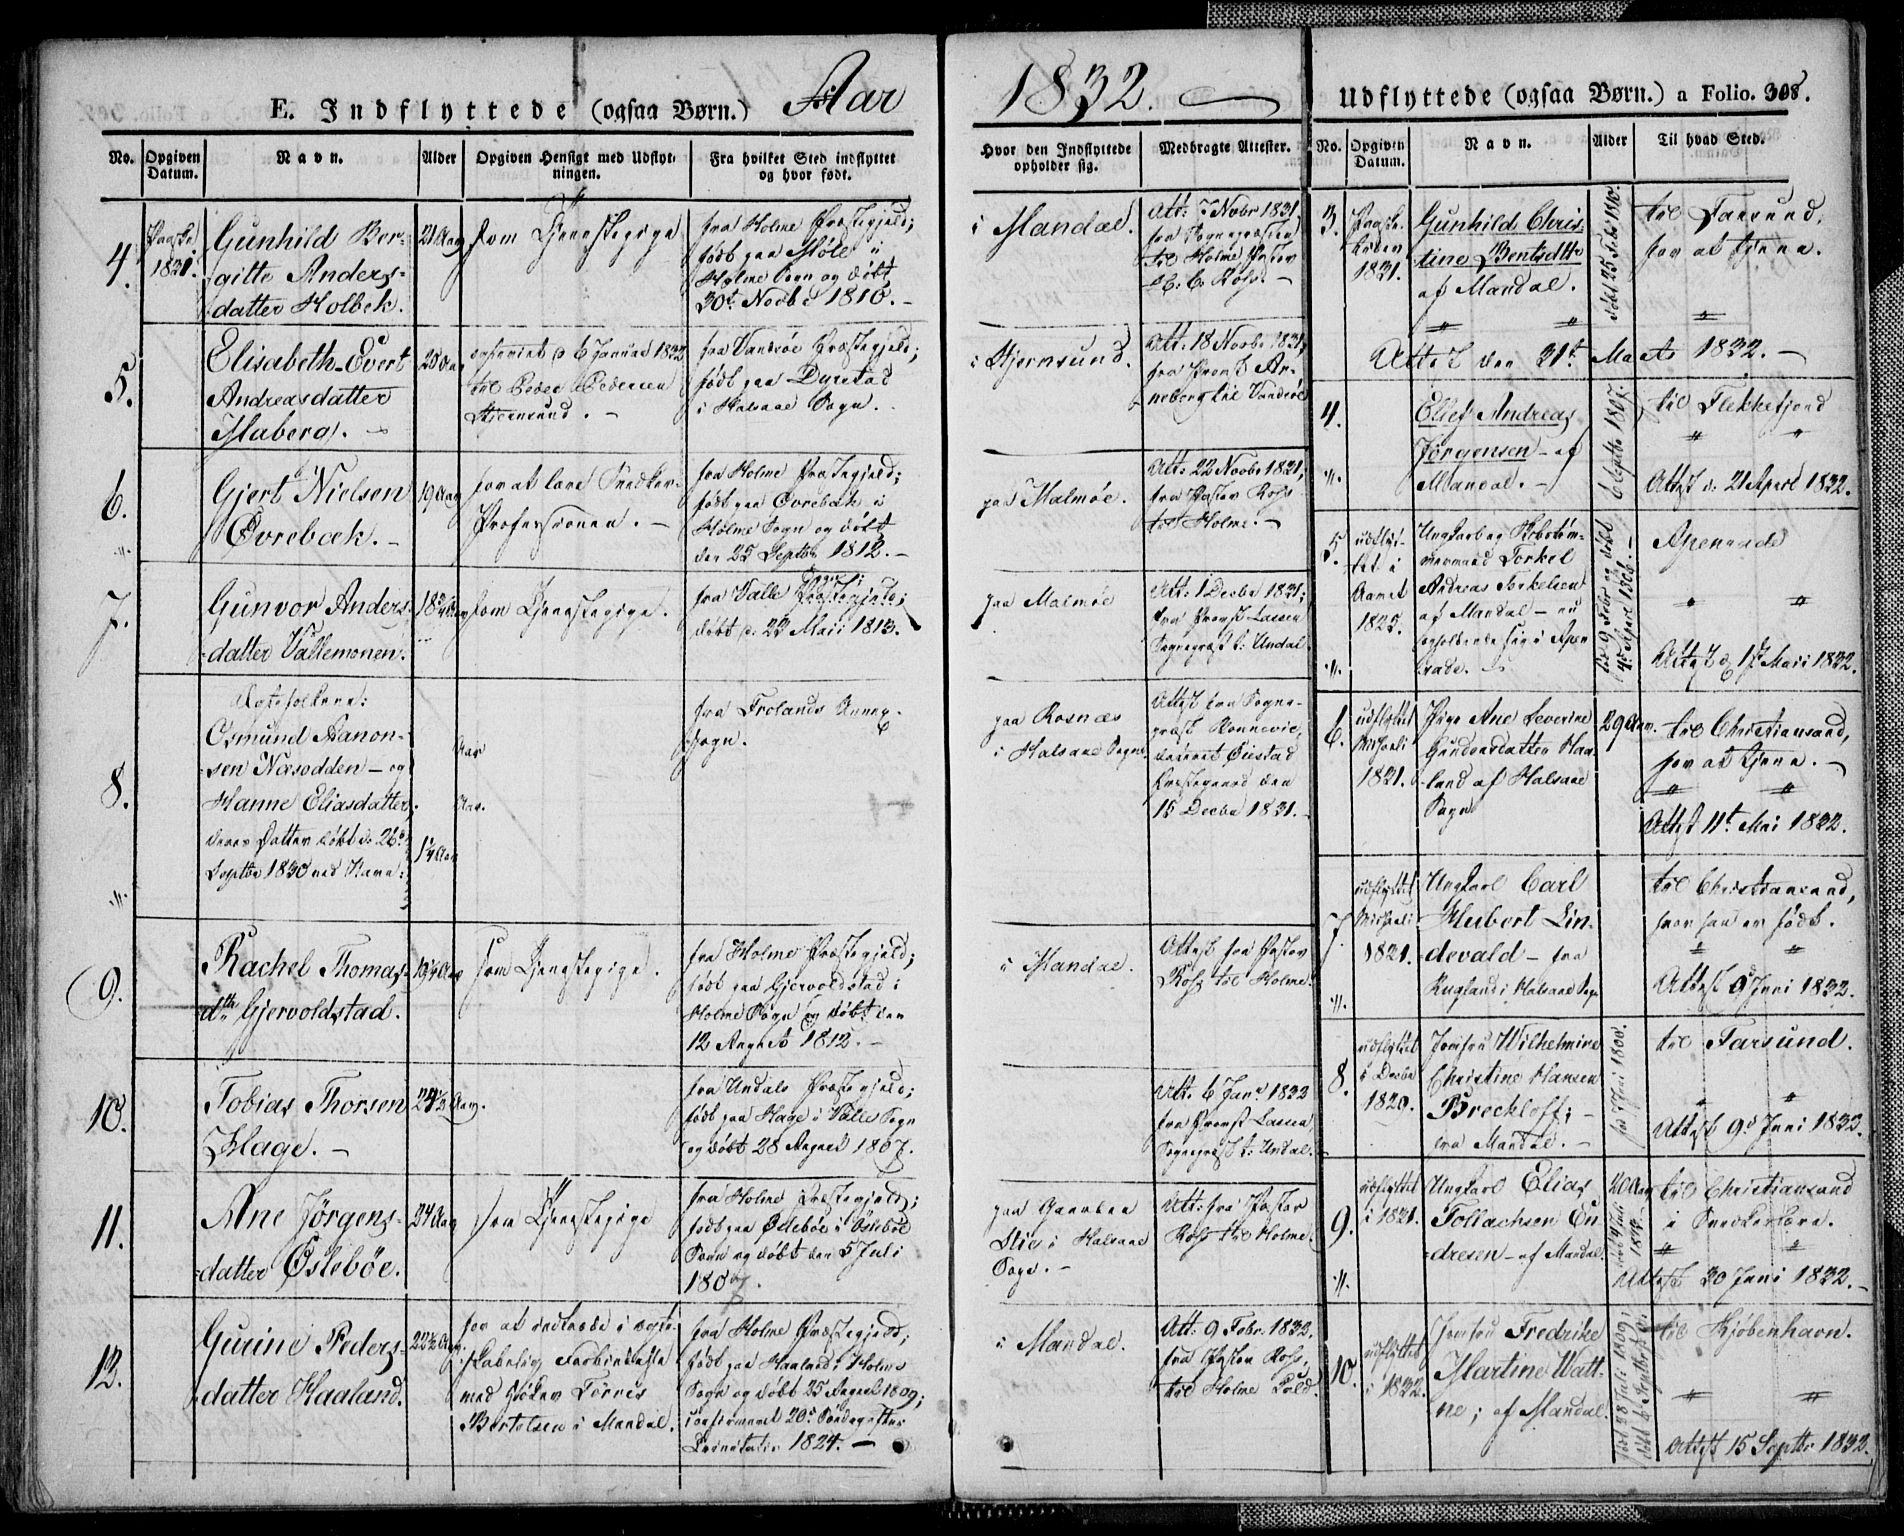 E. Indflyttede (ogsaa Børn.) Aar 1832. Udflyttede (ogsaa Børn.) a Folio. 308.
No.
Opgiven Datum.
Navn.
Alder
Opgiven Hensigt med Udflytningen.
Fra hvilket Sted indflyttet og hvor født.
Hvor den Indflyttede opholder sig.
Medbragte Attester.
4.
Paaske 1831.
Gunhild Ber-
gitte Anders-
datter Holbek.
21 Aar
som Tjenestepige
fra Holme Præstegjeld;
født paa Møle i
Holme Sogn og døbt
30t Novbr 1810.
i Mandal.
Att: 7 Novbr 1831
fra Sognepræsten
til Holme Pastor
Rosz.
5.
Elisabeth Evert
Andreasdatter
Haberg.
til Peder Pedersen
Stjernsund.
fra Vandsøe Præstegjeld;
født paa Dyrstad
i Halsaae Sogn.
i Stjernsund.
Att: 18 Novbr 1831,
fra Provst Ar-
neberg til Vandsøe
6.
Gjert Nielsen
Øvrebæk.
19 Aar
for at lære Snedker-
Professionen.
fra Holme Præstegjeld;
født paa Øvrebæk i
Holme Sogn og døbt
den 25 Septbr 1812.
paa Malmøe.
Att: 22 Novbr 1831,
fra Pastor Rosz
til Holme.
7.
Gunvor Anders-
datter Vallemonen.
18 3/4 Aar
som Tjenestepige.
fra Valle Præstegjeld;
døbt d. 23 Maii 1813.
paa Malmøe
Att: 1 Decbr 1831;
fra Provst Lassen
Sognepræst t: Undal.
8.
Ægtefolkene:
Osmund Aanon-
sen Næsodden og
Hanne Eliasdatter,
deres Datter døbt d. 26
Septbr 1830 ved Navn:
Aar
Aar.
1 1/4 Aar
fra Frolands Annex-
Sogn.
paa Rosnæs
i Halsaae Sogn
Attest fra Sogne-
præst Rønnevie,
dateret Øiestad
Præstegaard den
15 Decbr 1831.
9.
Rachel Thomas-
dtr Gjervoldstad.
19 1/4 Aar
som Tjenestepige.
fra Holme Præstegjeld;
født paa Gjervoldstad i
Holme Sogn og døbt den
12 August 1812.
i Mandal.
Attest fra Pastor
Rosz til Holme.
10.
Tobias Thorsen
Hage.
24 1/2 Aar.
fra Undals Præstegjeld;
født paa Hage i Valle Sogn
og døbt 28 August 1807.
Att. 6 Janr 1832
fra Provst Lassen
Sognepræst t: Undal.
11.
Ane Jørgens-
datter Øslebøe.
24 Aar
som Tjenestepige
fra Holme Præstegjeld;
født paa Øslebøe i Øslebøe
Sogn og døbt den 5 Juli
1807.
i Halsaae
Sogn.
Att: fra Pastor
Rosz til Holme.
12.
Gurine Peders-
datter Haaland.
22 1/2 Aar.
for at indtræde i ægte-
skabelig Forbindelse
med Torris
Bertelsen i Mandal.
fra Holme Præstegjeld;
født paa Haaland i Holme
Sogn og døbt 25 August 1809;
confirmeret 20d Søndag efter
Trinitatis 1824.
i Mandal.
Att: 9 Febr. 1832,
fra Pastor Rosz,
til Holme
No.
Opgiven Datum.
Navn.
Alder
Til hvad Sted.
3.
Paaske-
tiden
1831.
Gunhild Chris-
tine Bentsdtr
af Mandal.
født 25 Febr 1810.
til Farsund,
for at tjene.
Attest den 31t Marts 1832.
4.
Elief Andreas
Jørgensen af
Mandal.
6 Septbr 1807.
til Flekkefjord
Attest d. 21 April 1832.
5.
udflyt-
tet i
Aaret
1825.
Ungkarl og Skibstøm-
mermand Torkel
Andreas Torkelsen
af Mandal nu
opholdende sig i Apen-
rade.
født 9 Febr og døbt
4 April 1808.
Apenrade
Attest d. 17 Maii 1832.
6.
udflyttet
Michaeli
1831.
Pige Ane Severine
Gundersdatter Haa-
land af Halsaae
Sogn
29 Aar.
til Christiansand,
for at tjene.
Attest 11t Mai 1832.
7.
udflyttet
Michaeli
1831.
Ungkarl Carl
Hubert Lin-
devald fra
i Halsaae Sogn
til Christiansand,
hvor han er født.
Attest d Juni 1832.
8.
udflyttet
i Decbr
1820.
Jomfru Wilhelmine
Christine Hansen
Breckloff;
fra Mandal.
1800.
til Farsund.
Attest 9d Juni 1832.
9.
udflyttet
i 1831.
Ungkarl Elias
Tollachsen En-
dresen af Mandal.
20 Aar
til Christiansand
i Snedkerlære.
Attest 30 Juni 1832.
10.
udflyttet
i 1832.
Jomfru Fredrike
Martine Watt-
ne; af Mandal.
født 28 Juli 1809,
døbt 6 Septbr
til Kjøbenhavn.
Attest 15 Septbr 1832.